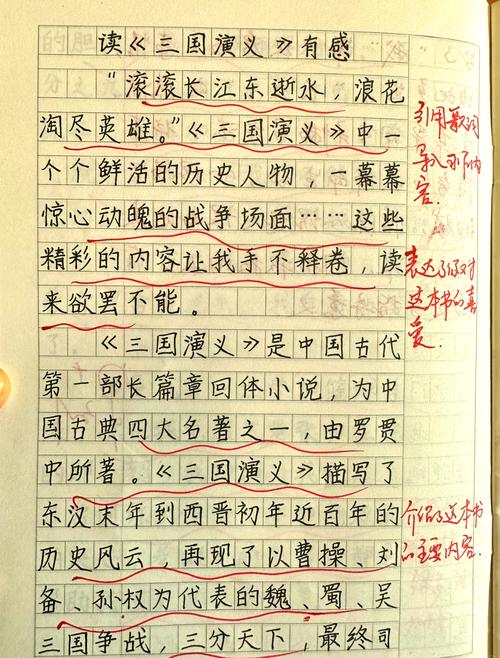 读《三国演义》有感
“滚滚长江东逝水，浪花
淘尽英雄。”《三国演义》中一
个个鲜活的历史人物，一幕幕
惊心动魄的战争场面……这些
精彩的内容让我手不释卷，读
来欲罢不能。
《三国演义》是中国古代
第一部长篇章回体小说，为中
国古典四大名著之一，由罗贯
中所著。《三国演义》描写了
东汉末年到西晋初年近百年的
历史风云，再现了以曹操、刘
备、孙权为代表的魏、蜀、吴
三国争战，三分天下，最终司
引用歌词
导入下内
容.
表达了对
这本书的喜
爱.
介绍了这本书
的主要内容.